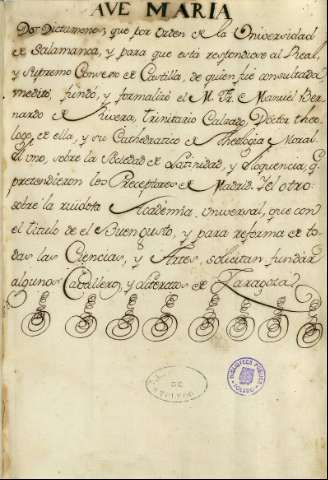 AVE MARIA
Dos Dictamenes, que por orden de la Universidad
de Salamanca, y para que esta respondiese al Real,
y Supremo Consejo de Castilla, de quien fue consultada
meditó, fundó, y formalizó el M. Fr. Manuel Ber-
nardo de Rivera, Trinitario Calzado, Doctor theo-
logo de ella, y su Cathedratico de Theologia Moral.
El uno, sobre la Sociedad de Latinidad, y eloquencia, q̃
pretendieron los Preceptores de Madrid. Y el otro:
sobre la Academia, Universal, que con
el titulo de el Buen gusto, y para reforma de to-
das las Ciencias, y Artes, solicitan fundar
algunos Caballeros, y de Zaragoza
DE
TOLEDO
BIBLIOTECA PUBLICA
TOLEDO